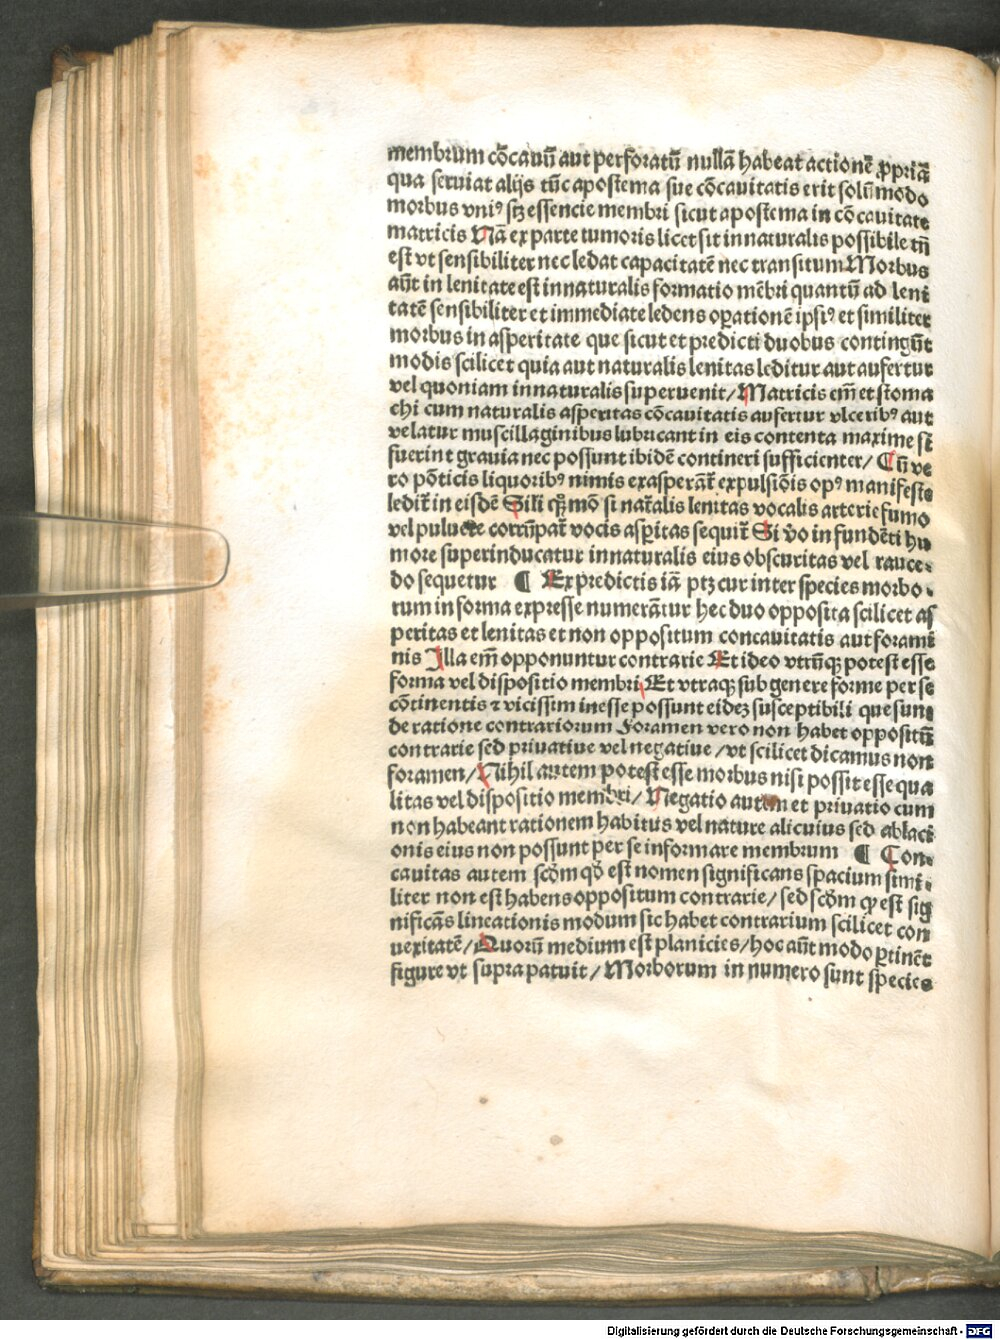 membrum cōcauū aut perforatū nullā habeat actionē ꝓpriā
qua seruiat alijs tūc apostema sue cōcauitatis erit solūmodo
morbus vniꝰ scꝫ essencie membri sicut apostema in cōcauitate
matricis Nā ex parte tumoris licet sit innaturalis possibile tn̄
est vt sensibiliter nec ledat capacitatē nec transitum Morbus
aūt in lenitate est innaturalis formatio mēbri quantū ad leni
tatē sensibiliter et immediate ledens oꝑationē ipsiꝰ et similiter
morbus in asperitate que sicut et predicti duobus contingūt
modis scilicet quia aut naturalis lenitas leditur aut aufertur
vel quoniam innaturalis superuenit/ Matricis em̄ et stoma
chi cum naturalis asperitas cōcauitatis aufertur vlceribꝰ aut
velatur muscillaginibus lubricant in eis contenta maxime si
fuerint grauia nec possunt ibidē contineri sufficienter/ Cū ve
ro pōticis liquoribꝰ nimis exasperāt̄ expulsiōis opꝰ manifeste
ledit̄ in eisdē Sili qꝫ mō si nat̄alis lenitas vocalis arterie fumo
vel puluere corrūpat̄ vocis asꝑitas sequit̄ Si v̄o infundēti hu
more superinducatur innaturalis eius obscuritas vel rauce-
do sequetur ¶ Ex predictis iā ptꝫ cur inter species morbo-
rum in forma expresse numerātur hec duo opposita scilicet as
peritas et lenitas et non oppositum concauitatis aut forami
nis Illa em̄ opponuntur contrarie Et ideo vtrūqꝫ potest esse
forma vel dispositio membri Et vtraqꝫ sub genere forme per se
cōtinentis ⁊ vicissim inesse possunt eideꝫ susceptibili que sunt
de ratione contrariorum Foramen vero non habet oppositū
contrarie sed priuatiue vel negatiue /vt scilicet dicamus non
foramen/ Nihil autem potest esse morbus nisi possit esse qua
litas vel dispositio membri/ Negatio autem et priuatio cum
non habeant rationem habitus vel nature alicuius sed ablaci
onis eius non possunt per se informare membrum ¶ Con-
cauitas autem scd̄m qd̄ est nomen significans spacium simi-
liter non est habens oppositum contrarie/ sed scd̄m ꝙ est sig
nificās lineationis modum sic habet contrarium scilicet con
uexitatē/ Quorū medium est planicies/ hoc aūt modo ꝑtinēt
figure vt supra patuit/ Morborum in numero sunt species
Digitalisierung gefördert durch die Deutsche Forschungsgemeinschaft - DFG